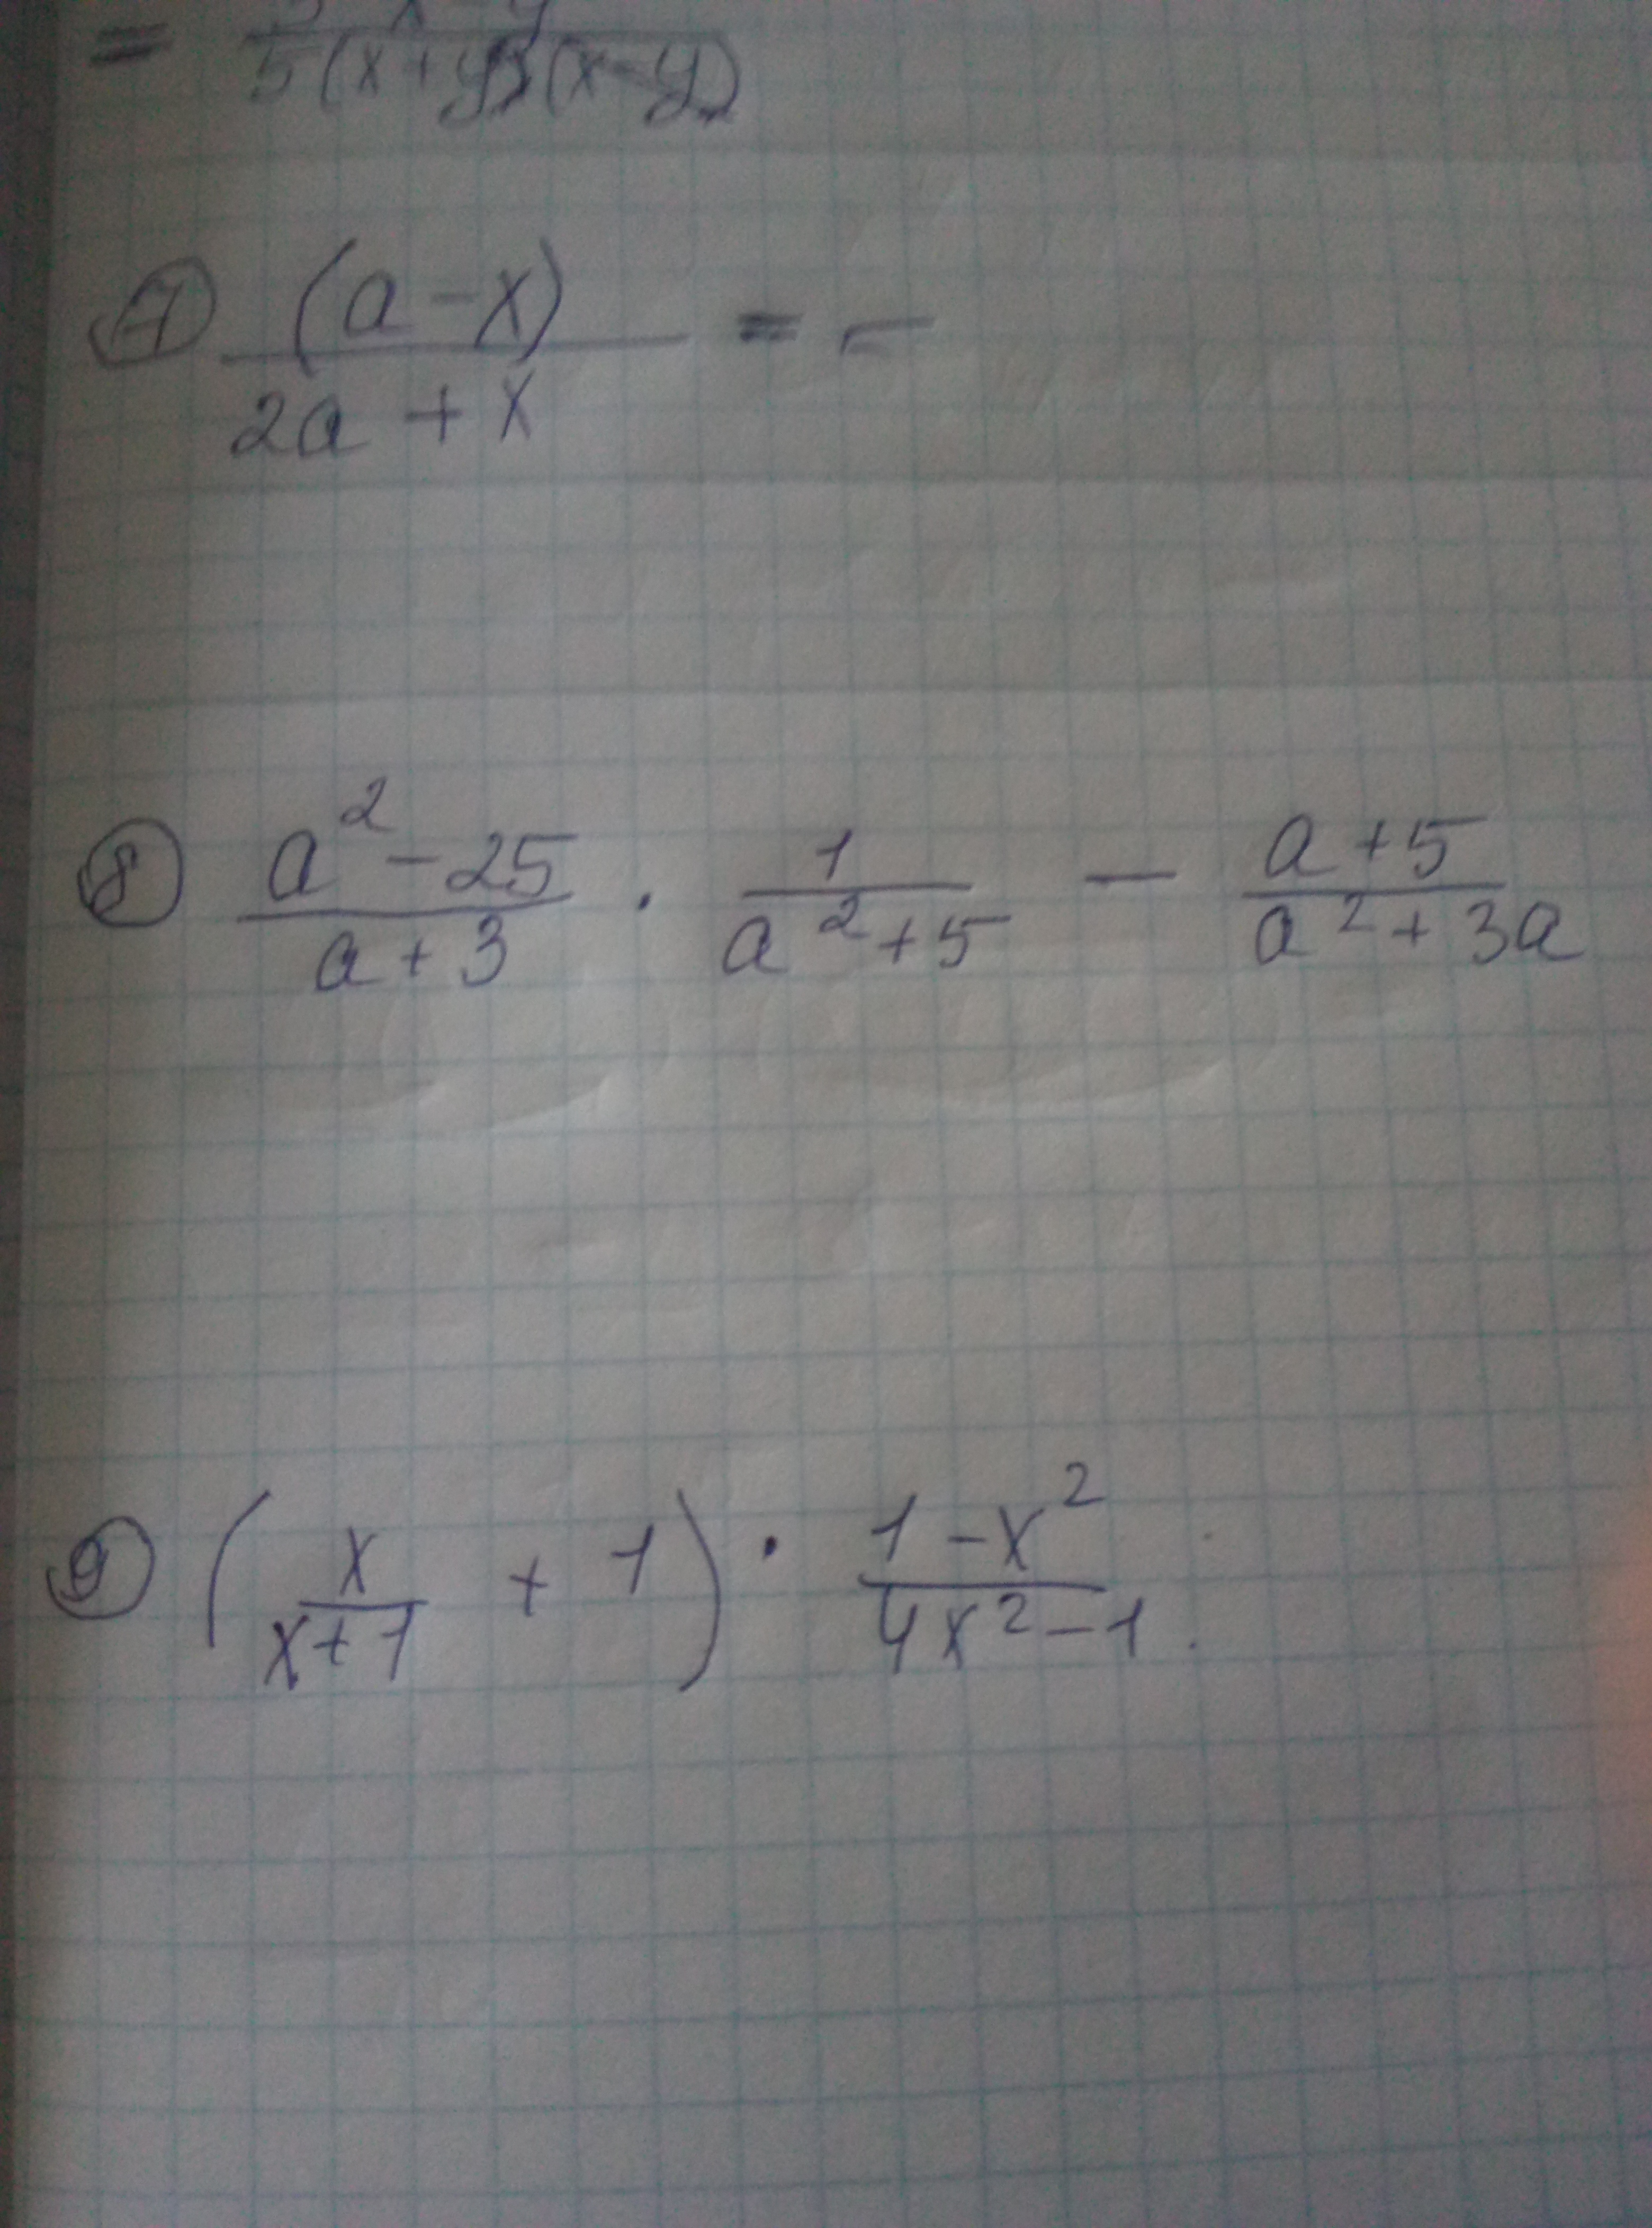 = / 5(x+y)(x-y)
7 (a-x) / 2a+x = -
8 a²-25 / a+3 · 1 / a²+5 - a+5 / a²+3a
9 (x / x+1 + 1) · 1-x² / 4x²-1.